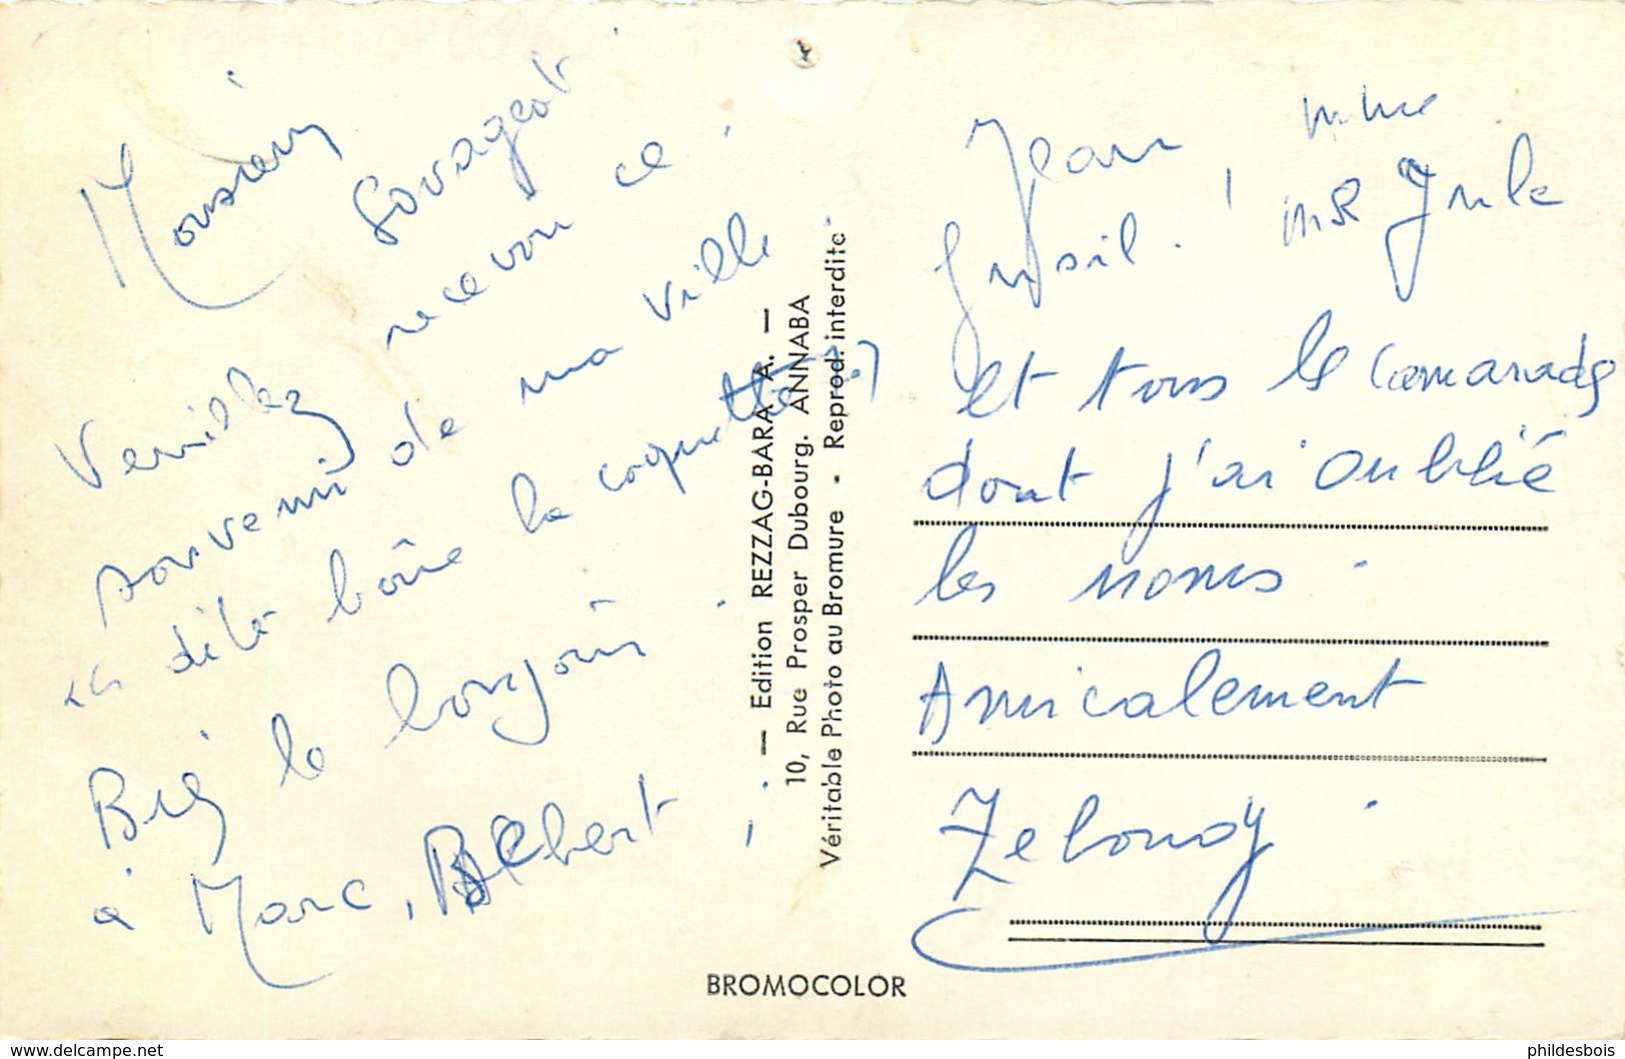 Monsieur
Sovageot
Veuillez recevoir ce
souvenir de ma ville
dite bône la coquette
le bonjour
à Marc, Albert,
Jean, mme
mR Jule
et tous le camarads
dont j'ai oublié
les noms.
Amicalement
Zelouaj
— Edition REZZAG-BARA A. —
10, Rue Prosper Dubourg. ANNABA
Véritable Photo au Bromure - Reprod. interdite
BROMOCOLOR
www.delcampe.net
phildesbois